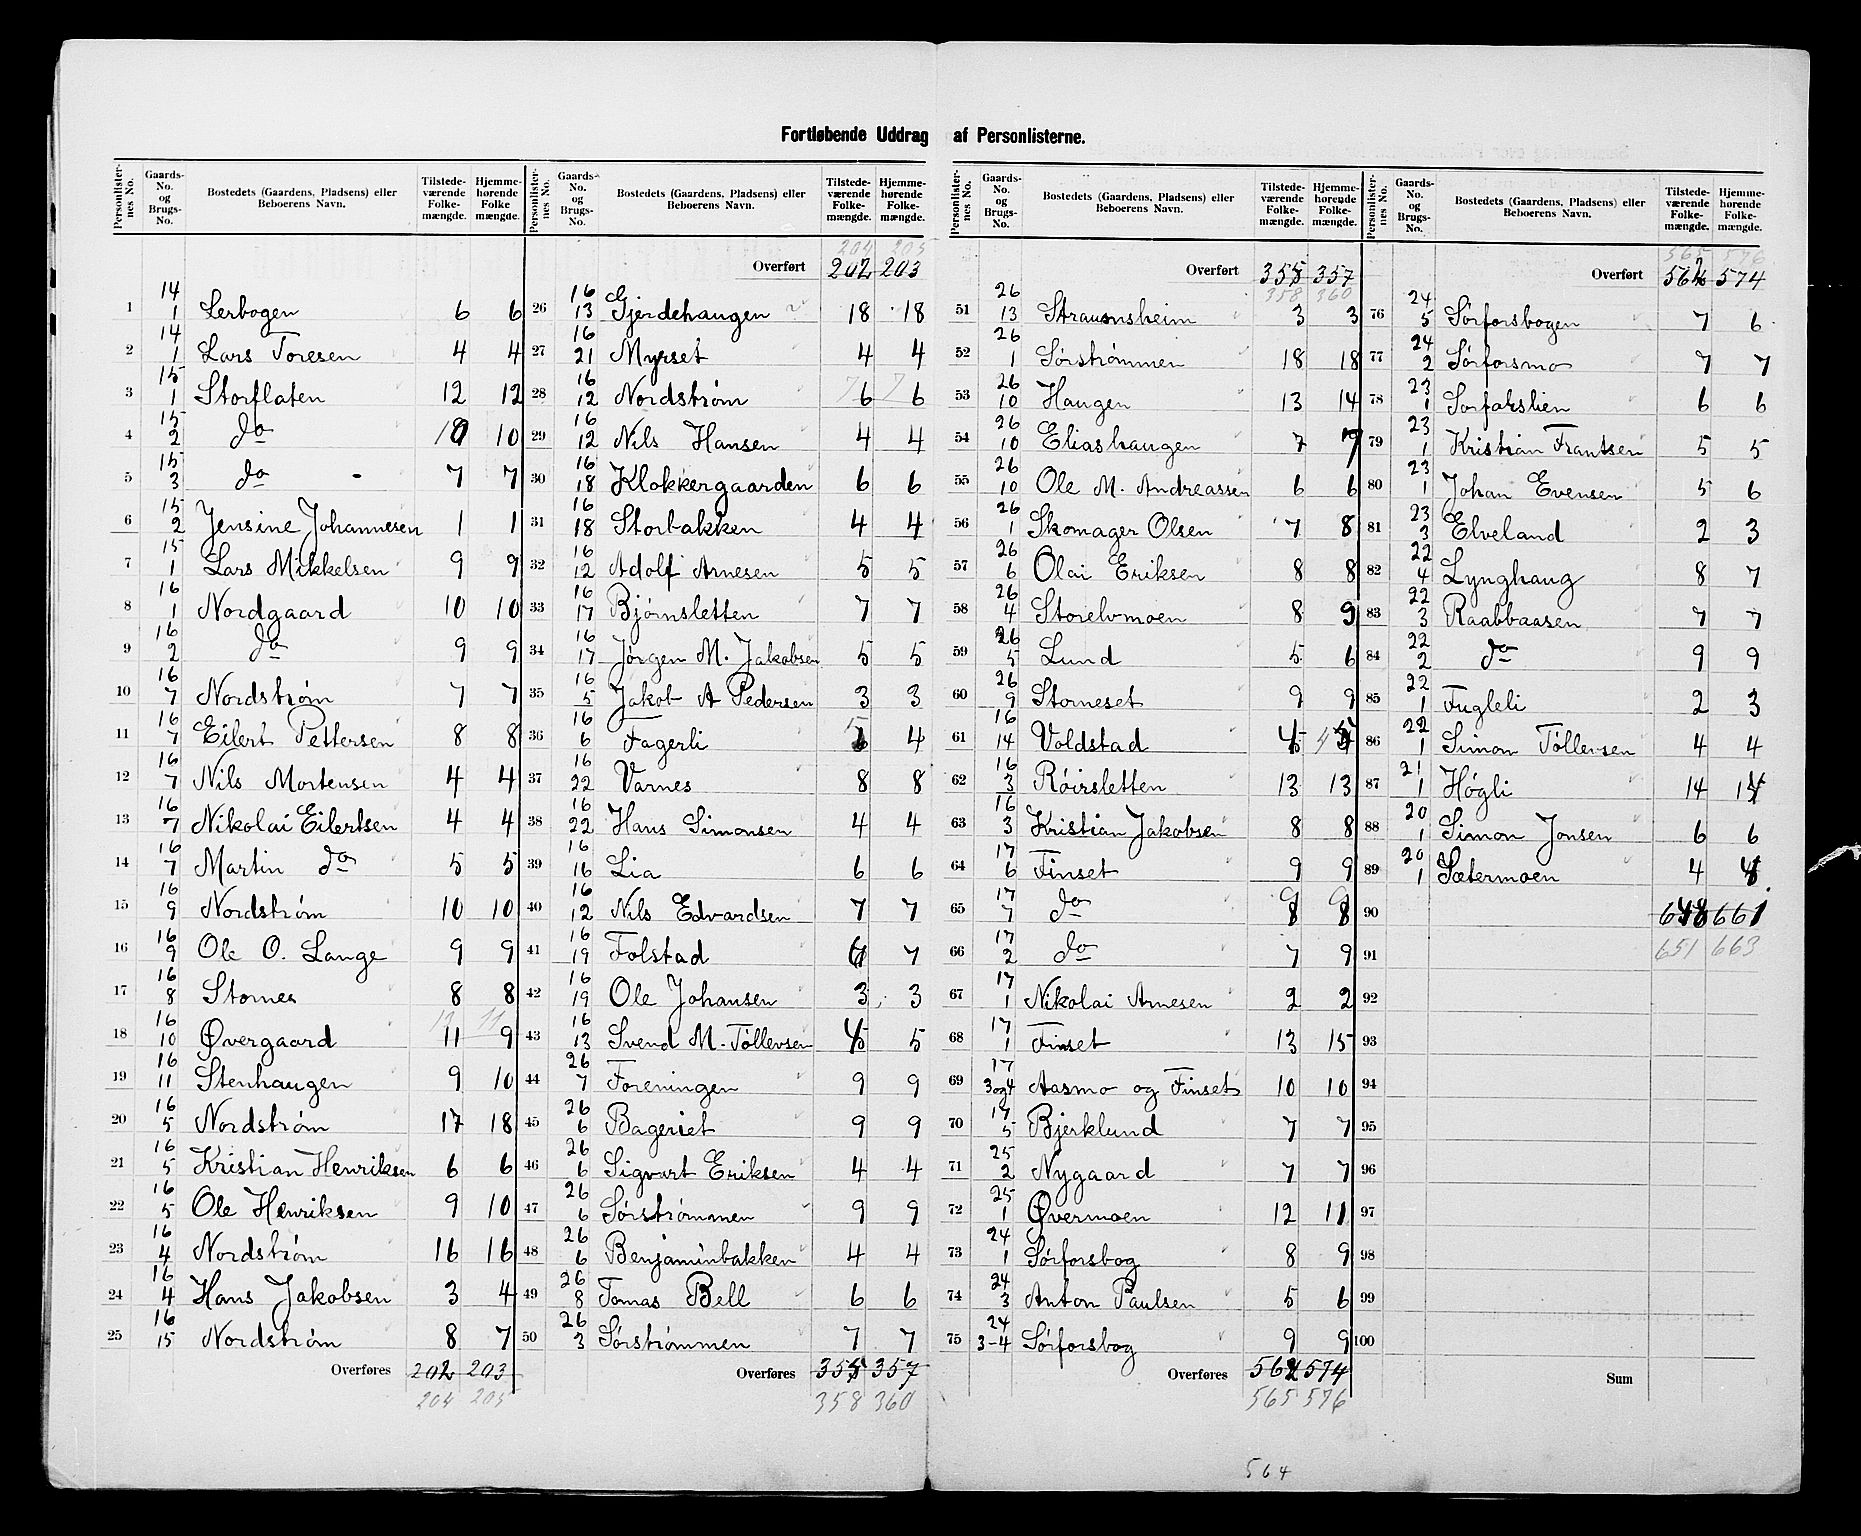 Fortløbende Uddrag af Personlisterne.
Personlisternes No. | Gaards-No. og Brugs-No. | Bostedets (Gaardens, Pladsens) eller Beboerens Navn. | Tilstedeværende Folkemængde. | Hjemmehørende Folkemængde.
1 14/1 Lerbogen 6 6
2 14/1 Lars Toresen 4 4
3 15/1 Storflaten 12 12
4 15/2 do 10 10
5 15/3 do - 7 7
6 15/2 Jensine Johannesen 1 1
7 15/1 Lars Mikkelsen 9 9
8 16/1 Nordgaard 10 10
9 16/2 do 9 9
10 16/7 Nordstrøm 7 7
11 16/7 Eilert Pettersen 8 8
12 16/7 Nils Mortensen 4 4
13 16/7 Nikolai Eilertsen 4 4
14 16/7 Martin do 5 5
15 16/9 Nordstrøm 10 10
16 16/9 Ole O. Lange 9 9
17 16/8 Stornes 8 8
18 16/10 Øvergaard 11 9
19 16/11 Stenhaugen 9 10
20 16/5 Nordstrøm 17 18
21 16/5 Kristian Henriksen 6 6
22 16/5 Ole Henriksen 9 10
23 16/4 Nordstrøm 16 16
24 16/4 Hans Jakobsen 3 4
25 16/15 Nordstrøm 8 7
Overføres 202 203
204 205
Personlisternes No. | Gaards-No. og Brugs-No. | Bostedets (Gaardens, Pladsens) eller Beboerens Navn. | Tilstedeværende Folkemængde. | Hjemmehørende Folkemængde.
204 205
Overført 202 203
26 16/13 Gjerdehaugen 18 18
27 16/21 Myrset 4 4
28 16/12 Nordstrøm 7 6 7 6
29 16/12 Nils Hansen 4 4
30 16/18 Klokkergaarden 6 6
31 16/18 Storbakken 4 4
32 16/12 Adolf Arnesen 5 5
33 16/17 Bjørnsletten 7 7
34 16/17 Jørgen M. Jakobsen 5 5
35 16/5 Jakob A Pedersen 3 3
36 16/6 Fagerli 4
37 16/22 Varnes 8 8
38 16/22 Hans Simonsen 4 4
39 16/16 Lia 6 6
40 16/12 Nils Edvardsen 7 7
41 16/19 Folstad 7
42 16/19 Ole Johansen 3 3
43 16/13 Svend M. Tøllevsen 5 5
44 26/7 Foreningen 9 9
45 26/6 Bageriet 9 9
46 26/6 Sigvart Eriksen 4 4
47 26/6 Sørstrømmen 9 9
48 26/6 Benjaminbakken 4 4
49 26/8 Tomas Bell 6 6
50 26/3 Sørstrømmen 7 7
Overføres 355 357
358 360
Personlisternes No. | Gaards-No. og Brugs-No. | Bostedets (Gaardens, Pladsens) eller Beboerens Navn. | Tilstedeværende Folkemængde. | Hjemmehørende Folkemængde.
Overført 355 357
358 360
51 26/13 Straumsheim 3 3
52 26/1 Sørstrømmen 18 18
53 26/10 Haugen 13 14
54 26/10 Eliashaugen 7 7
55 26/10 Ole M. Andreassen 6 6
56 26/1 Skomager Olsen 7 8
57 26/6 Olai Eriksen 8 8
58 26/4 Storelvmoen 8 9
59 26/5 Lund 5 6
60 26/9 Storneset 9 9
61 16/14 Voldstad
62 16/3 Røirsletten 13 13
63 16/3 Kristian Jakobsen 8 8
64 17/6 Finset 9 9
65 17/7 do 9 8 9 8
66 17/2 do 7 9
67 17/1 Nikolai Arnesen 2 2
68 17/1 Finset 13 15
69 17/3og4 Aasmo og Finset 10 10
70 17/5 Bjerklund 7 7
71 25/2 Nygaard 7 7
72 25/1 Øvermoen 12 11
73 24/1 Sørforsbog 8 9
74 24/3 Anton Paulsen 5 6
75 24/3-4 Sørforsbog 9 9
Overføres 562 574
565 576
564
Personlisternes No. | Gaards-No. og Brugs-No. | Bostedets (Gaardens, Pladsens) eller Beboerens Navn. | Tilstedeværende Folkemængde. | Hjemmehørende Folkemængde.
565 576
Overført 562 574
76 24/5 Sørforsbogen 7 6
77 24/2 Sørforsmo 7 7
78 23/1 Sorfarslien 6 6
79 23/1 Kristian Frantsen 5 5
80 23/1 Johan Evensen 5 6
81 23/3 Elveland 2 3
82 22/4 Lynghaug 8 7
83 22/3 Raabbaasen 7 7
84 22/2 do 9 9
85 22/1 Fugleli 2 3
86 22/1 Simon Tøllevsen 4 4
87 21/1 Høgli 14 14
88 20/1 Simon Jonsen 6 6
89 20/1 Sætermoen 4 4
90 648 661
91 651 663
92
93
94
95
96
97
98
99
100
Sum